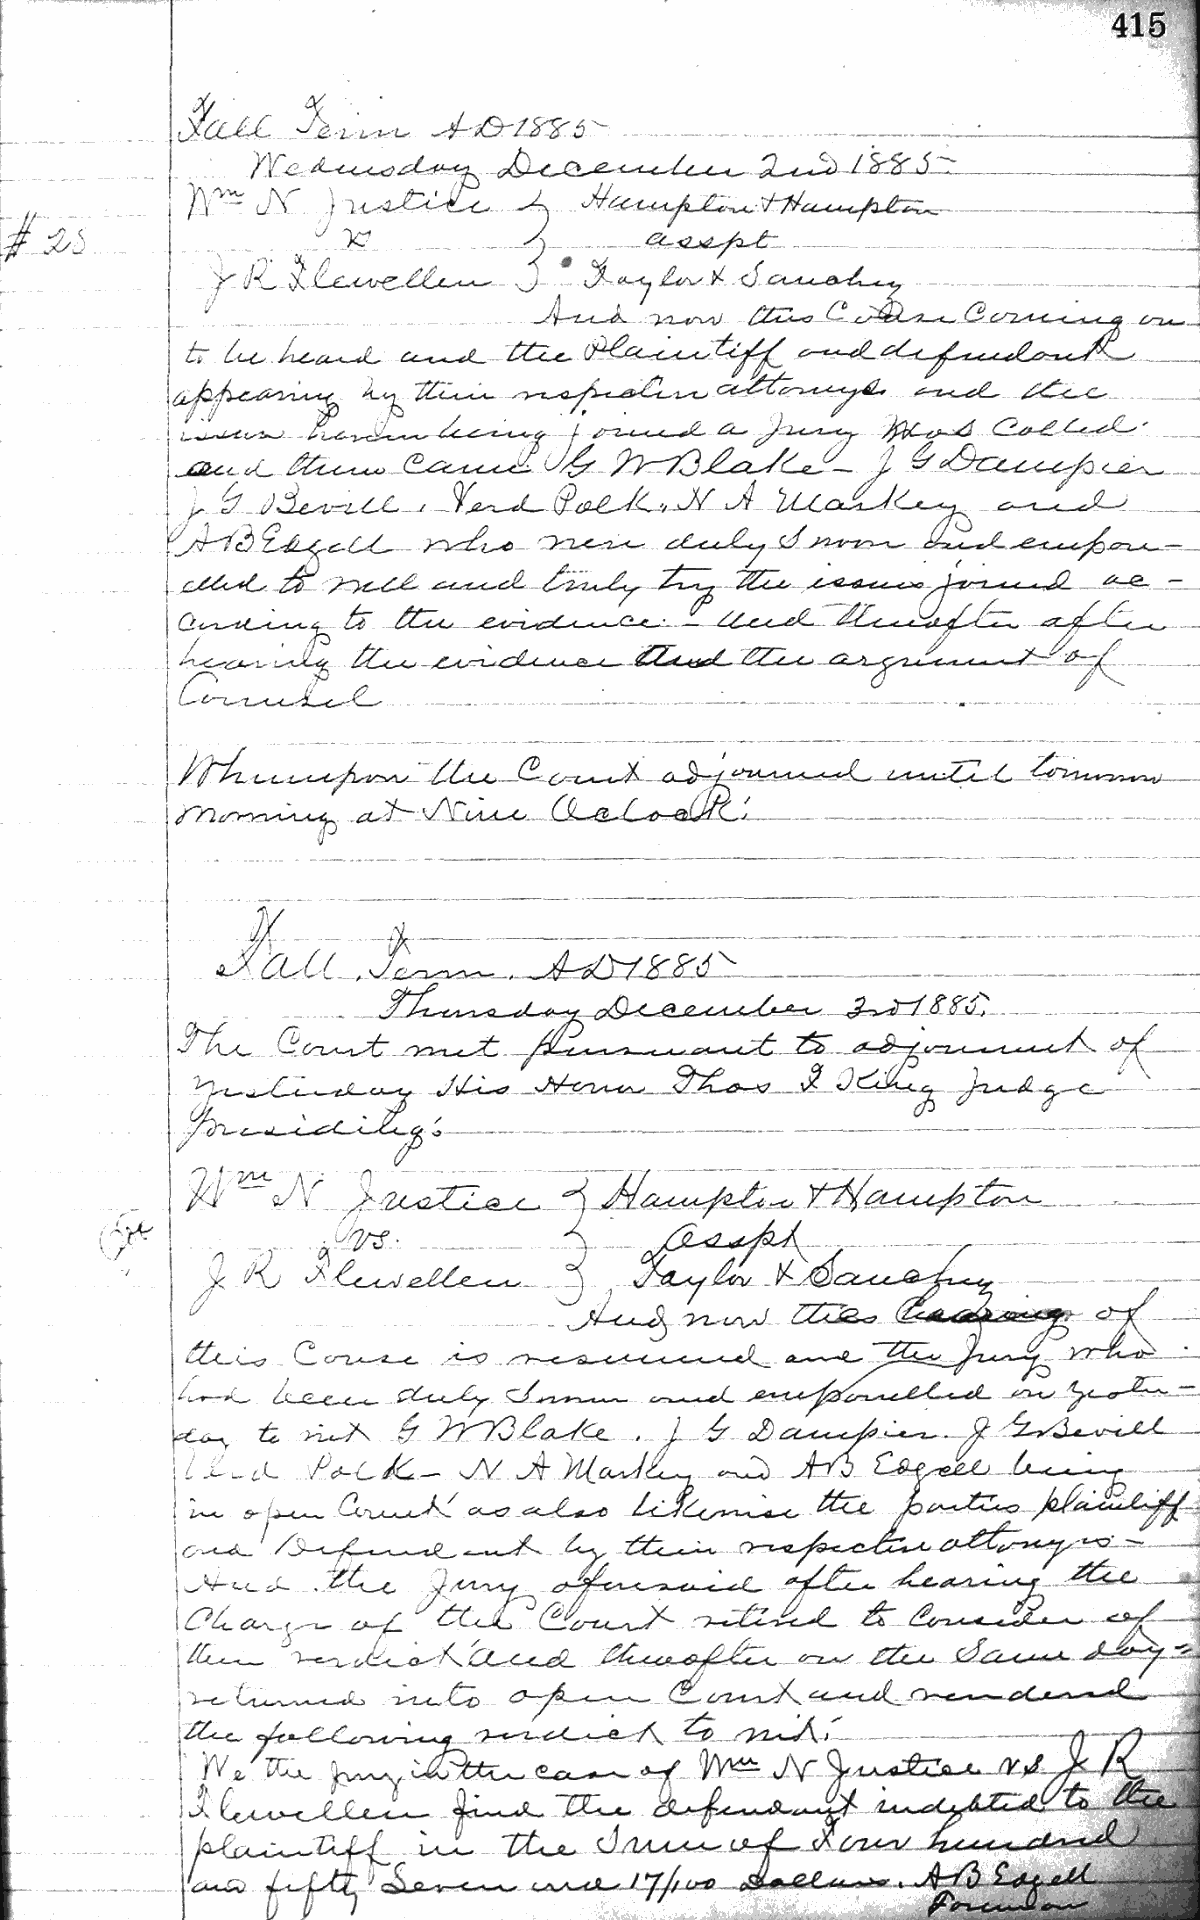 415
Fall Term AD 1885
Wednesday December 2nd 1885
Wm N Justice } Hampton & Hampton
# 25 vs } asspt
J R Flewellen } Taylor & Sanchez
And now this Cause Coming on
to be heard and the Plaintiff and defendant
appearing by their respective attorneys and the
issue herein being joined a Jury Was Called
and there came G W Blake - J G Dampier
J G Bevill, Ferd Polk, N A Markey and
A B Edgell who were duly Sworn and empan-
elled to well and truly try the issues joined ac-
cording to the evidence - And thereafter after
hearing the evidence And the argument of
Counsel
Whereupon the Court adjourned until tomorrow
morning at Nine OClock.
Fall Term AD 1885
Thursday December 3rd 1885.
The Court met pursuant to adjournment of
yesterday His Honor Thos F King Judge
Presiding.
Wm N Justice } Hampton & Hampton
vs. } asspt
J R Flewellen } Taylor & Sanchez
And now the hearing of
this Cause is resumed and the Jury who
had been duly Sworn and empanelled on yester-
day to wit G W Blake. J G Dampier. J G Bevill
Ferd Polk - N A Markey and A B Edgell being
in open Court as also likewise the parties plaintiff
and Defendant by their respective attorneys -
And the Jury aforesaid after hearing the
Charge of the Court retired to Consider of
their verdict and thereafter on the Same day
returned into open Court and rendered
the following verdict to wit.
We the jury in the case of Wm N Justice vs J R
Flewellen find the defendant indebted to the
plaintiff in the Sum of Four hundred
and fifty Seven and 17/100 Dollars. A B Edgell
Foreman